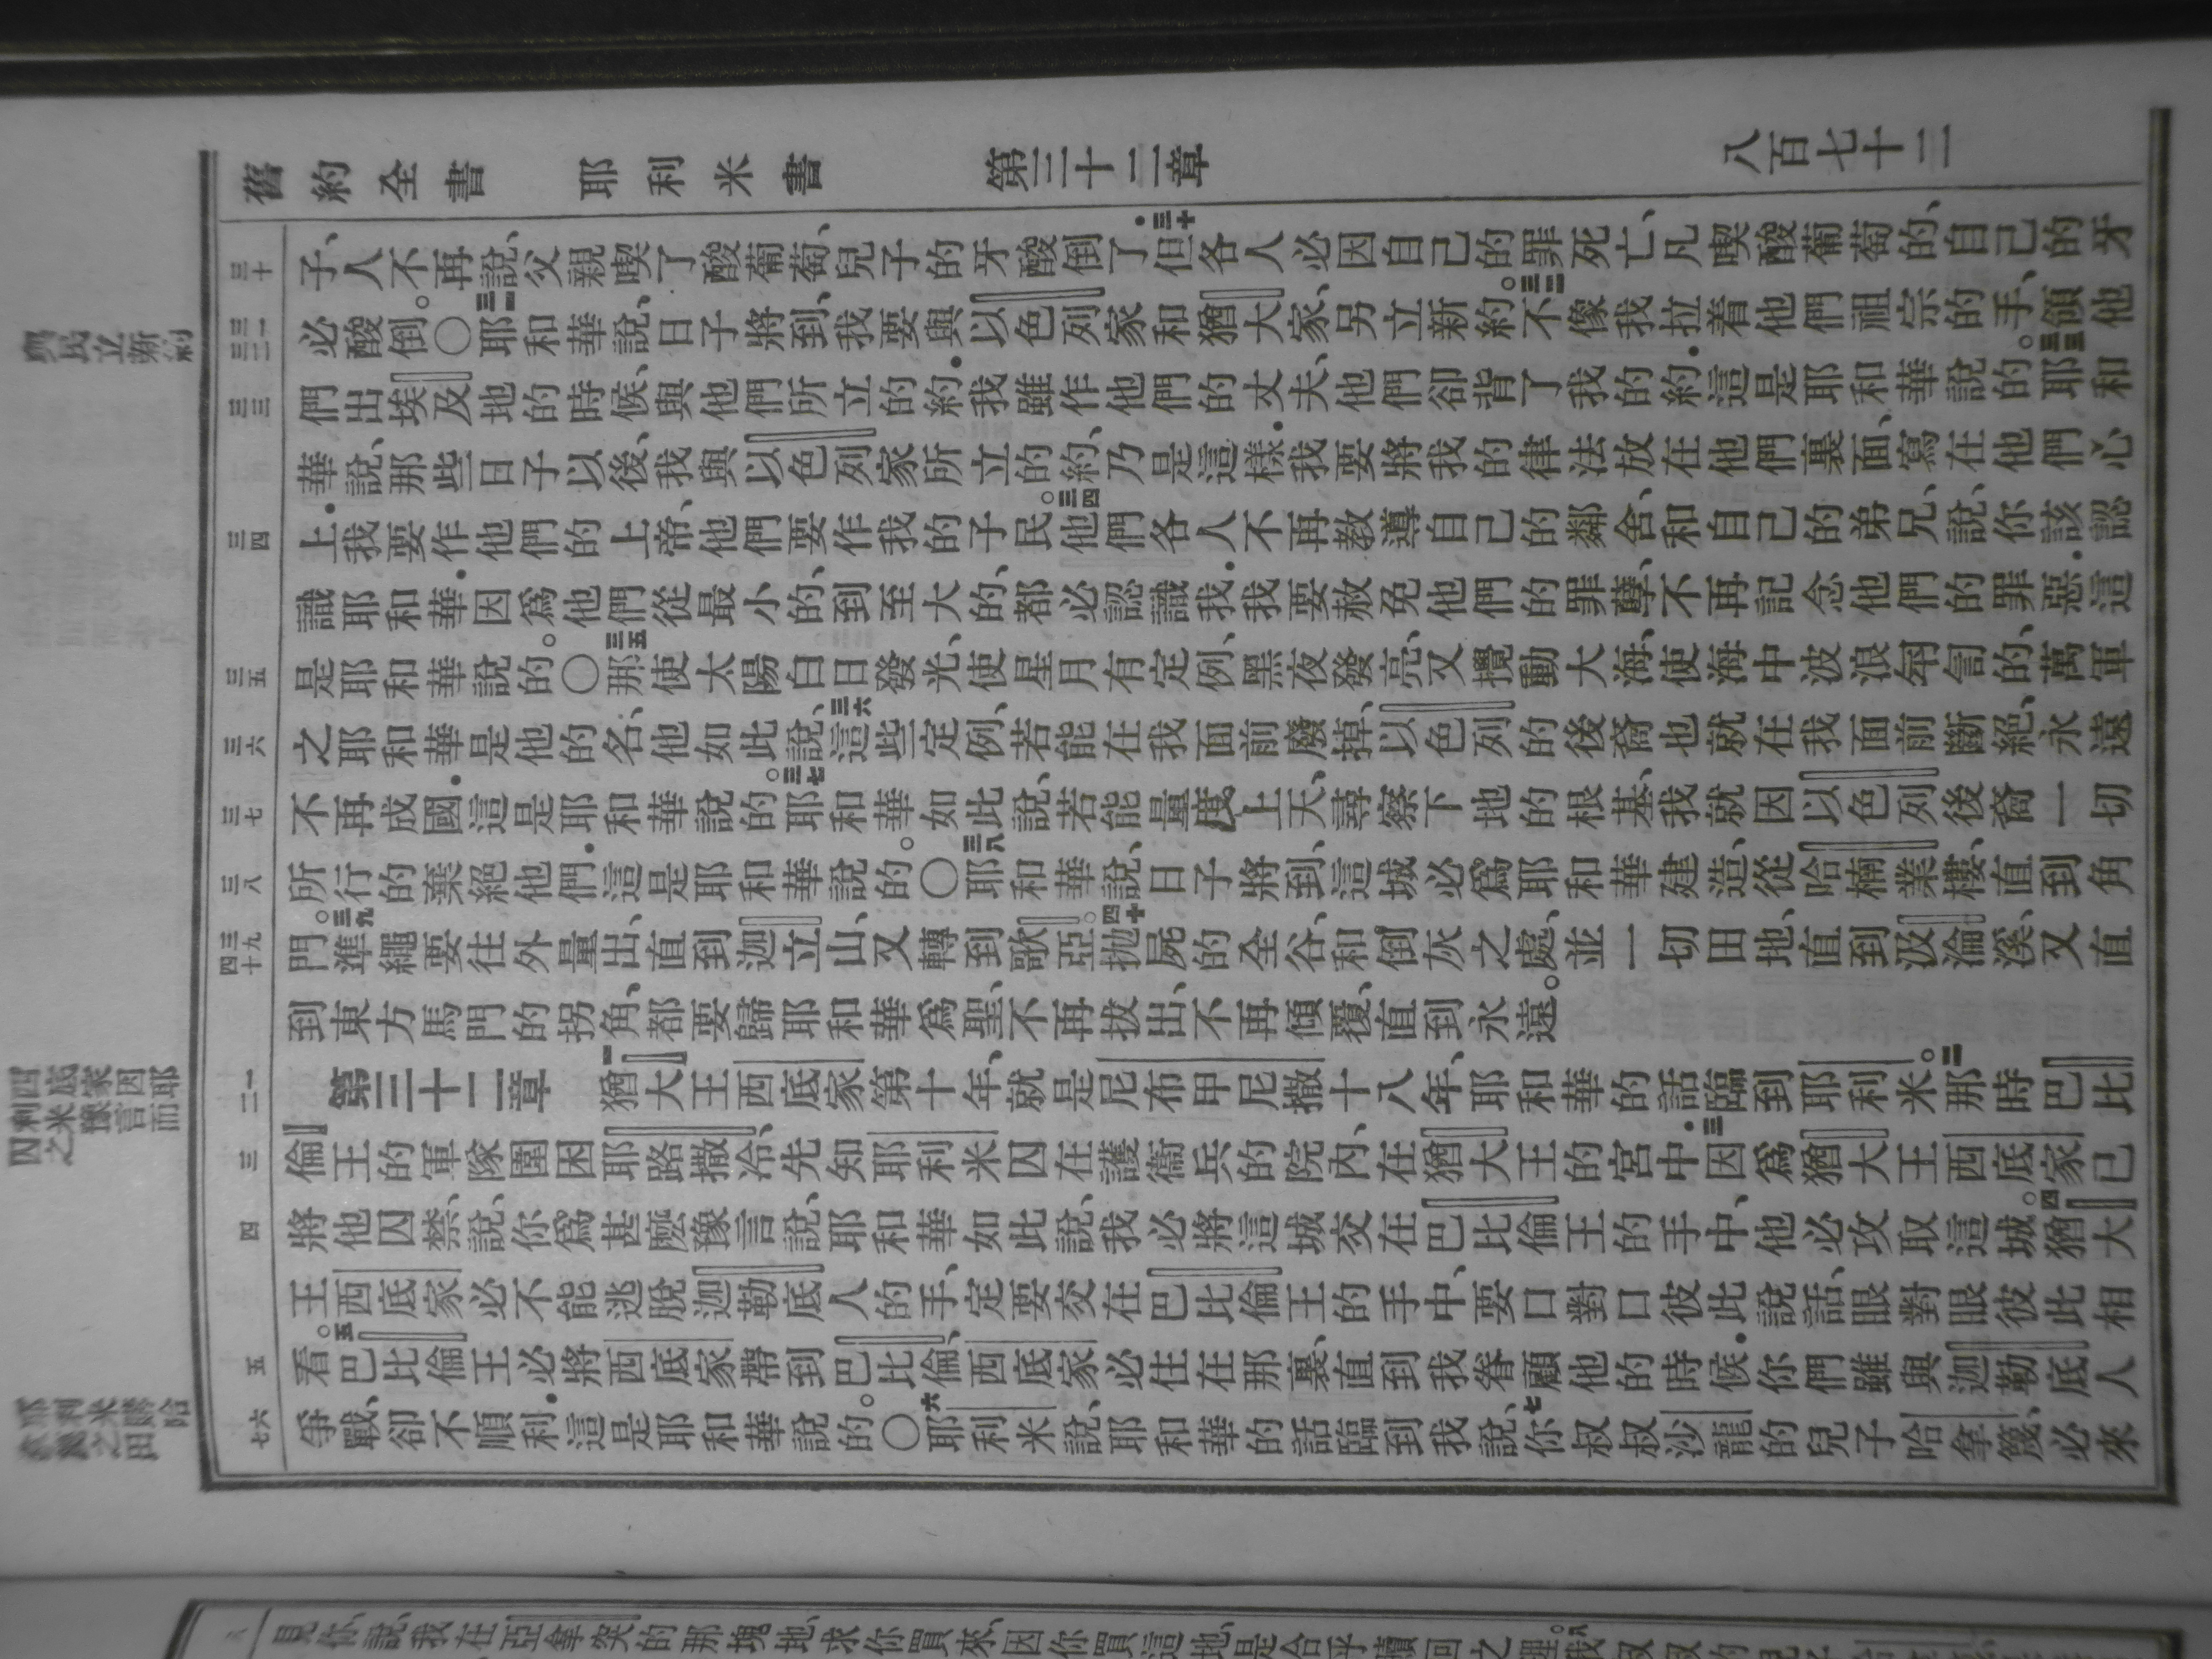 舊約全書 耶利米書 第三十二章 八百七十三
三十
子、人不再說、父親喫了酸葡萄、兒子的牙酸倒了.三十但各人必因自己的罪死亡、凡喫酸葡萄的、自己的牙
與民立新約
三一
三二
必酸倒。〇三一耶和華說、日子將到、我要與以色列家和猶大家、另立新約.三二不像我拉着他們祖宗的手、領他
三三
們出埃及地的時候、與他們所立的約.我雖作他們的丈夫、他們卻背了我的約.這是耶和華說的。三三耶和
華說、那些日子以後、我與以色列家所立的約、乃是這樣.我要將我的律法放在他們裏面、寫在他們心
三四
上.我要作他們的上帝、他們要作我的子民。三四他們各人不再教導自己的鄰舍、和自己的弟兄、說、你該認
識耶和華.因爲他們從最小的、到至大的、都必認識我.我要赦免他們的罪孽、不再記念他們的罪惡.這
三五
是耶和華說的。〇三五那使太陽白日發光、使星月有定例、黑夜發亮、又攪動大海、使海中波浪匉訇的、萬軍
三六
之耶和華是他的名、他如此說、三六這些定例、若能在我面前廢掉、以色列的後裔也就在我面前斷絕、永遠
三七
不再成國.這是耶和華說的。三七耶和華如此說、若能量度上天、尋察下地的根基、我就因以色列後裔一切
三八
所行的棄絕他們.這是耶和華說的。〇三八耶和華說、日子將到、這城必爲耶和華建造、從哈楠業樓、直到角
三九
四十
門。三九準繩要往外量出、直到迦立山、又轉到歌亞。四十拋屍的全谷、和倒灰之處、並一切田地、直到汲淪溪、又直
到東方馬門的拐角、都要歸耶和華爲聖、不再拔出、不再傾覆、直到永遠。
耶利米因豫言而
西底家囚之
一
二
第三十二章 一猶大王西底家第十年、就是尼布甲尼撒十八年、耶和華的話臨到耶利米。二那時巴比
三
倫王的軍隊圍困耶路撒冷、先知耶利米囚在護衞兵的院內、在猶大王的宮中.三因爲猶大王西底家已
四
將他囚禁、說、你爲甚麼豫言說、耶和華如此說、我必將這城交在巴比倫王的手中、他必攻取這城。四猶大
王西底家必不能逃脫迦勒底人的手、定要交在巴比倫王的手中、要口對口彼此說話、眼對眼彼此相
五
看。五巴比倫王必將西底家帶到巴比倫、西底家必住在那裏、直到我眷顧他的時候.你們雖與迦勒底人
六
七
爭戰、卻不順利.這是耶和華說的。〇六耶利米說、耶和華的話臨到我說、七你叔叔沙龍的兒子哈拿篾、必來
八
見你說、我在亞拿突的那塊地、求你買來、因你買這地、是合乎贖回之理。八我叔叔的兒子